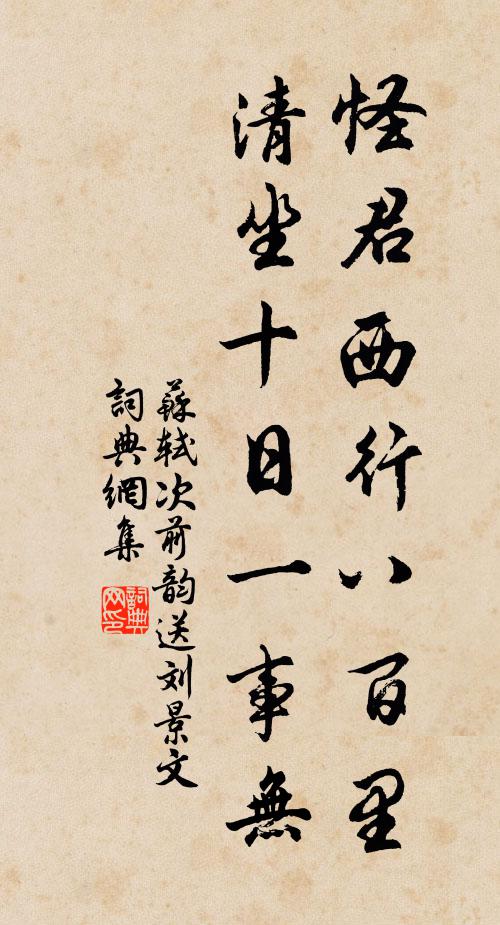 怪君西行八百里
清坐十日一事無
蘇轼次前韵送刘景文
詞典網集
詞典網印